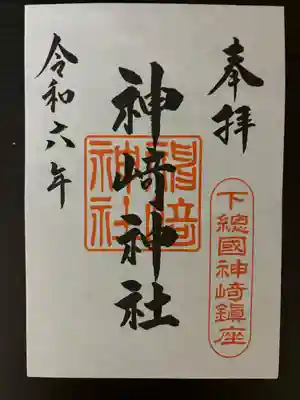 奉拝
下總國神崎鎮座
神崎神社
神崎神社
令和六年